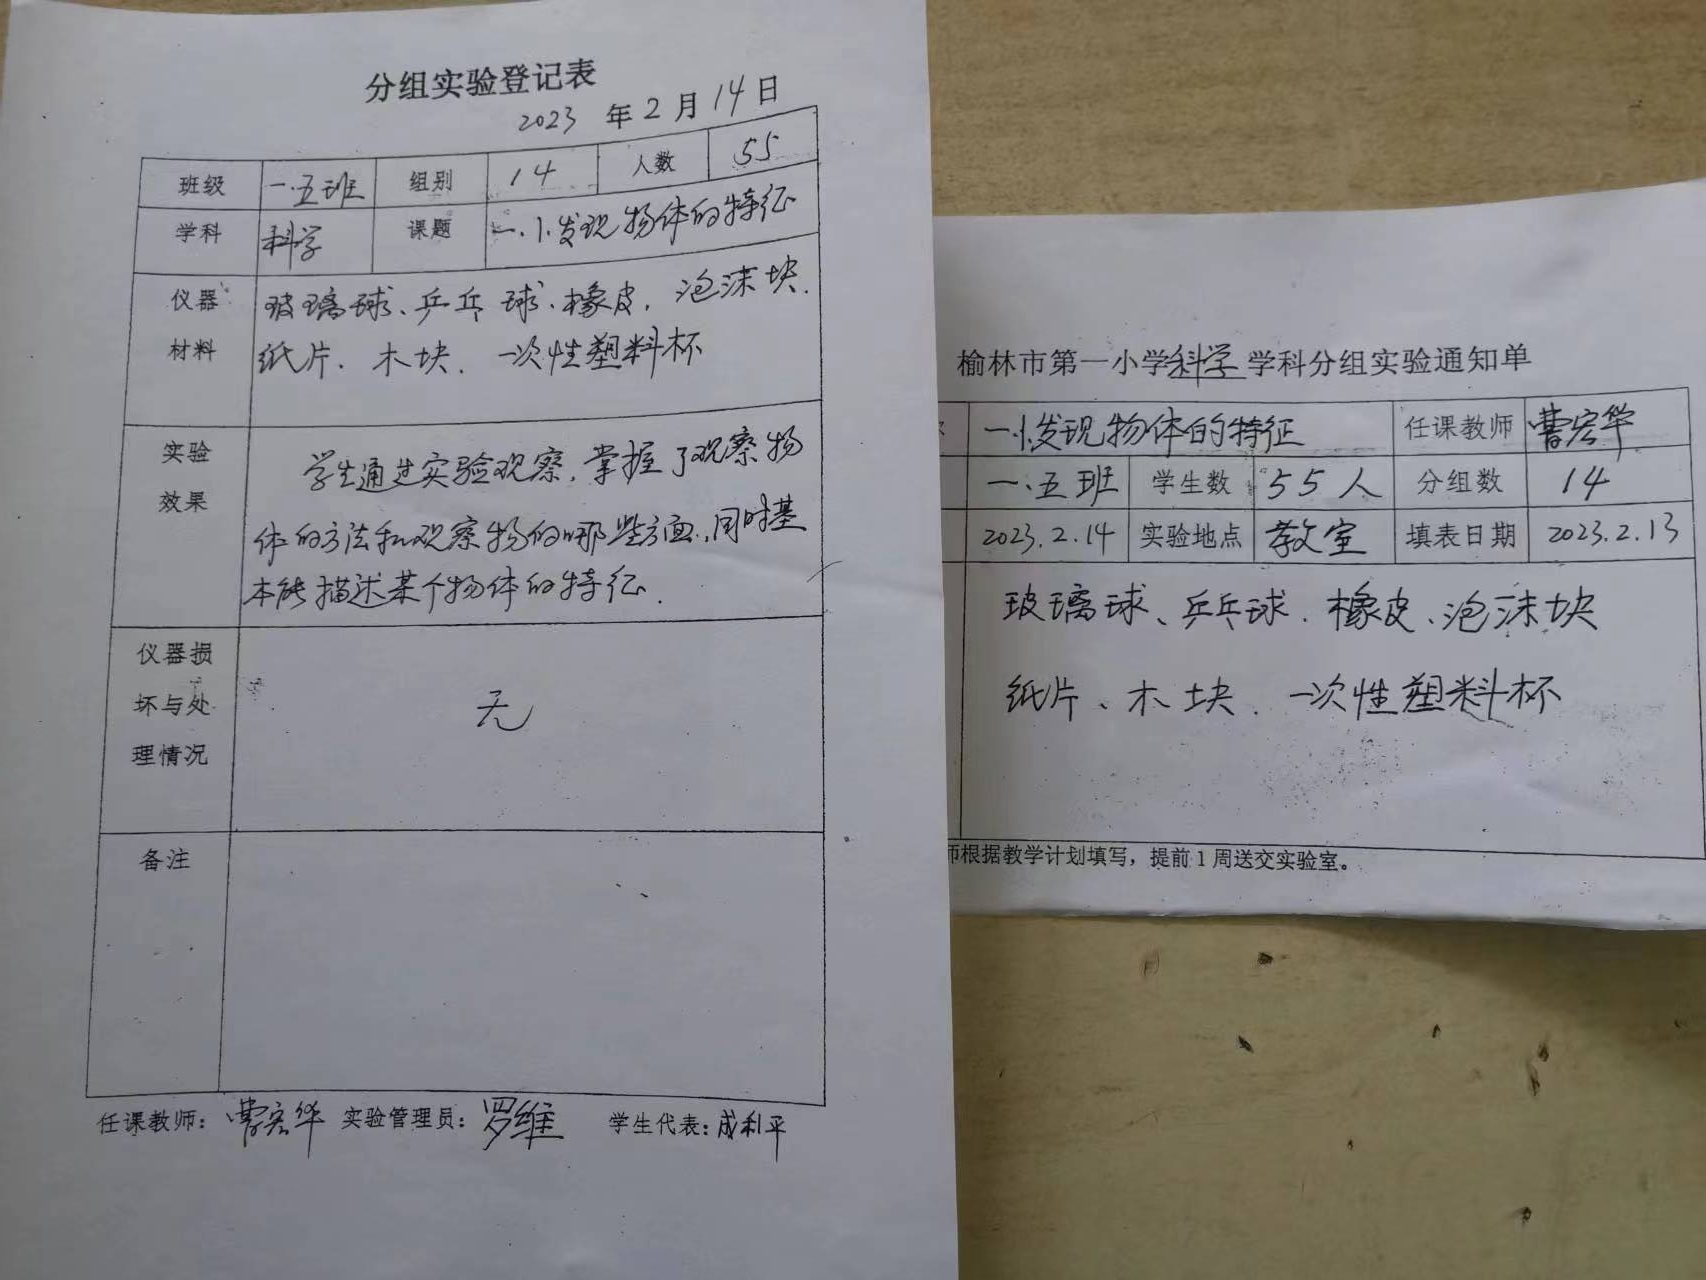 分组实验登记表
2023 年 2 月 14 日
班级 一.五班 组别 14 人数 55
学科 科学 课题 一.1.发现物体的特征
仪器 玻璃球、乒乓球、橡皮、泡沫块.
材料 纸片、木块、一次性塑料杯
实验 学生通过实验观察,掌握了观察物
效果 体的方法和观察物的哪些方面,同时基
本能描述某个物体的特征.
仪器损
坏与处 无
理情况
备注
任课教师: 曹宏华 实验管理员: 罗维 学生代表: 成利平
榆林市第一小学科学学科分组实验通知单
一.1.发现物体的特征 任课教师 曹宏华
一.五班 学生数 55人 分组数 14
2023.2.14 实验地点 教室 填表日期 2023.2.13
玻璃球、乒乓球.橡皮、泡沫块
纸片、木块、一次性塑料杯
师根据教学计划填写,提前1周送交实验室。